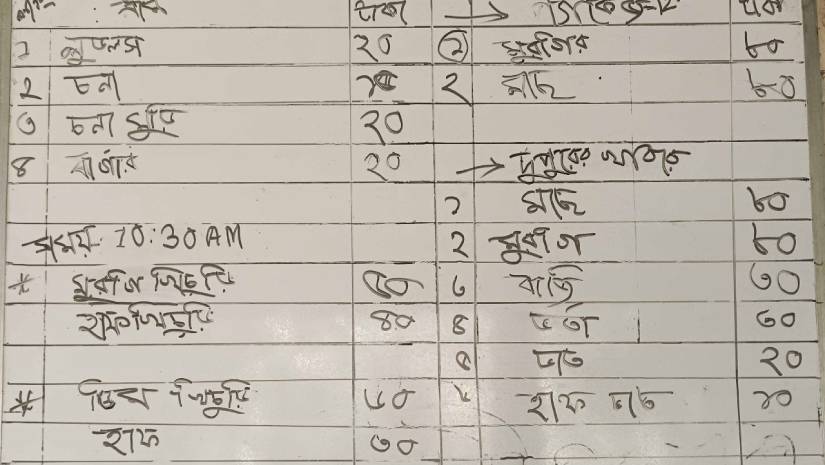 টাকা
১ নুডুলস ২০
২ চনা
৩ চনা মুড়ি ২০
৪ বার্গার ২০
সময় 10:30 AM
* মুরগির খিচুড়ি
হাফ খিচুড়ি ৪০
* ডিম খিচুড়ি ৬০
হাফ ৩০
→ টাকা
১ মুরগির ৮০
২ মাছ ৮০
→ দুপুরের খাবার
১ মাছ ৮০
২ মুরগি ৮০
৩ বাজি ৩০
৪ ভর্তা ৩০
৫ ভাত ২০
৬ হাফ ভাত ১০